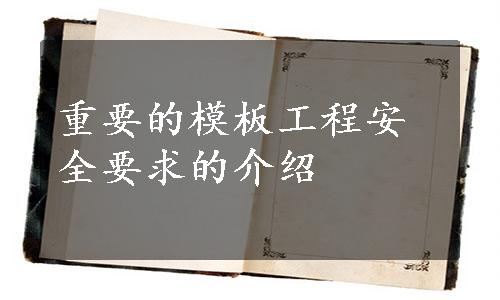 重要的模板工程安
全要求的介绍